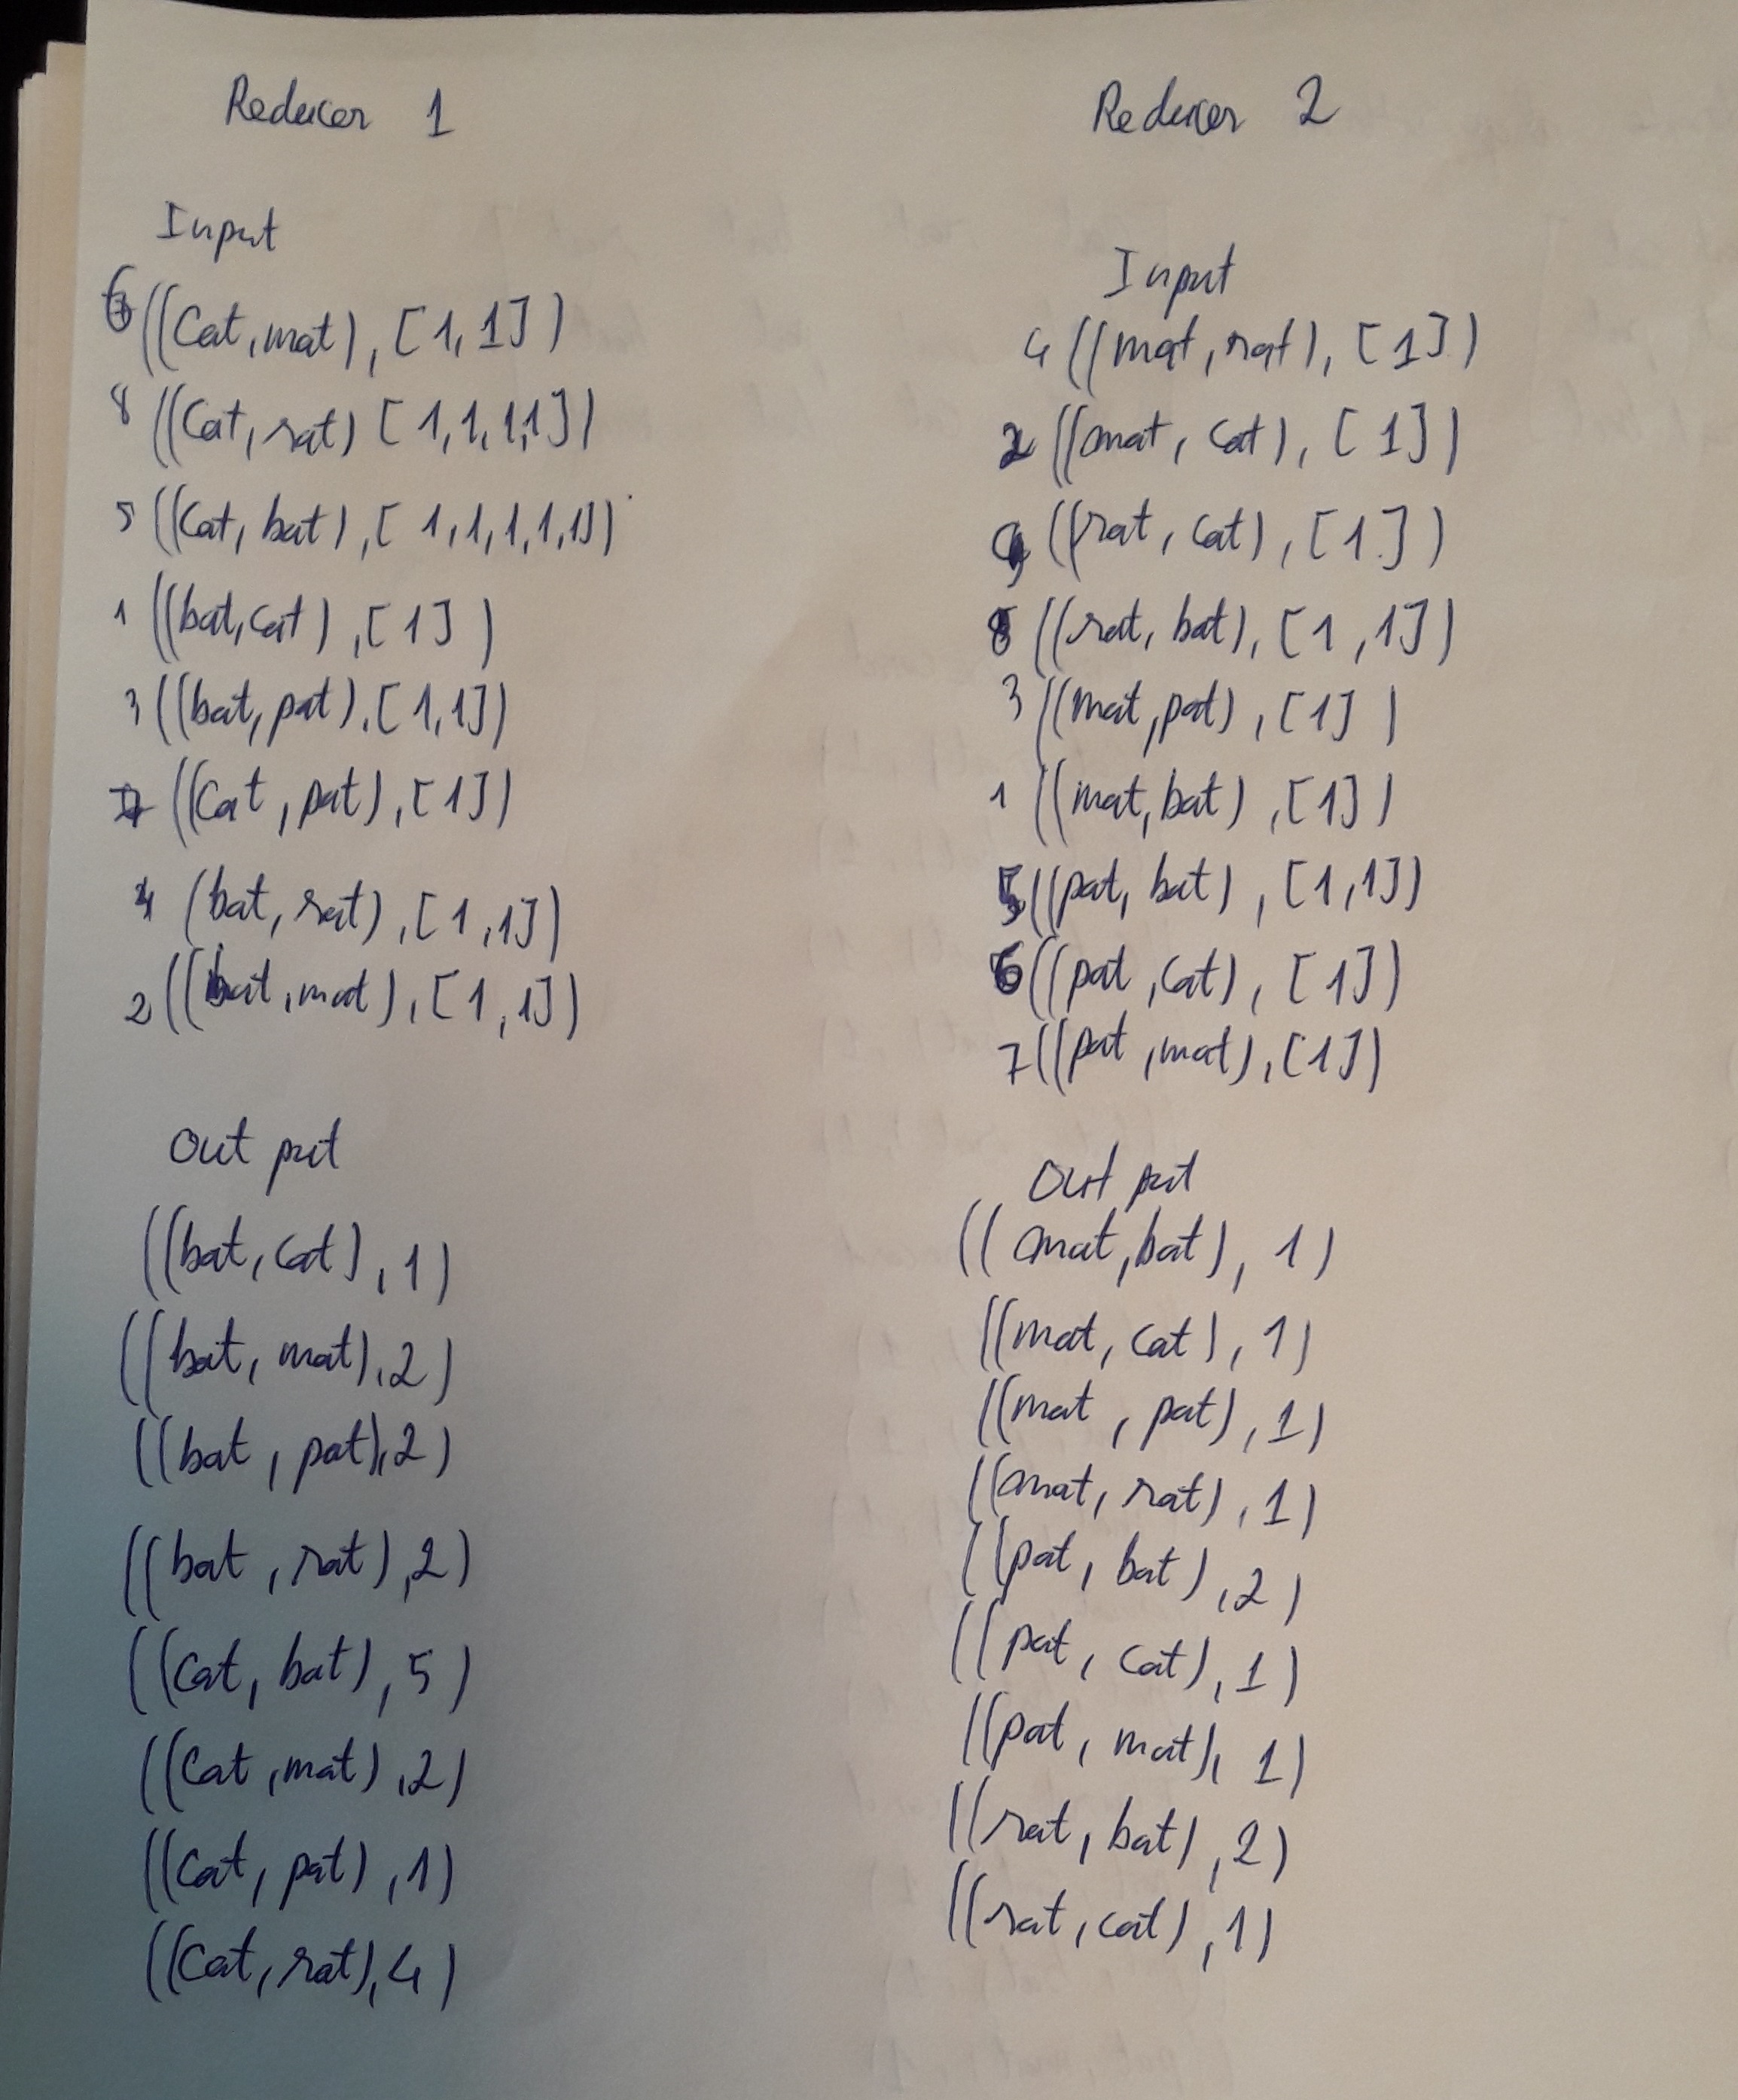 Reducer 1
Input
6 ((cat, mat), [1, 1])
8 ((cat, rat) [1, 1, 1, 1])
5 ((cat, bat), [1, 1, 1, 1, 1])
1 ((bat, cat), [1])
3 ((bat, pat), [1, 1])
7 ((cat, pat), [1])
4 (bat, rat), [1, 1])
2 ((bat, mat), [1, 1])
Output
((bat, cat), 1)
((bat, mat), 2)
((bat, pat), 2)
((bat, rat), 2)
((cat, bat), 5)
((cat, mat), 2)
((cat, pat), 1)
((cat, rat), 4)
Reducer 2
Input
4 ((mat, rat), [1])
2 ((mat, cat), [1])
9 ((rat, cat), [1])
8 ((rat, bat), [1, 1])
3 ((mat, pat), [1])
1 ((mat, bat), [1])
5 ((pat, bat), [1, 1])
6 ((pat, cat), [1])
7 ((pat, mat), [1])
Output
((mat, bat), 1)
((mat, cat), 1)
((mat, pat), 1)
((mat, rat), 1)
((pat, bat), 2)
((pat, cat), 1)
((pat, mat), 1)
((rat, bat), 2)
((rat, cat), 1)